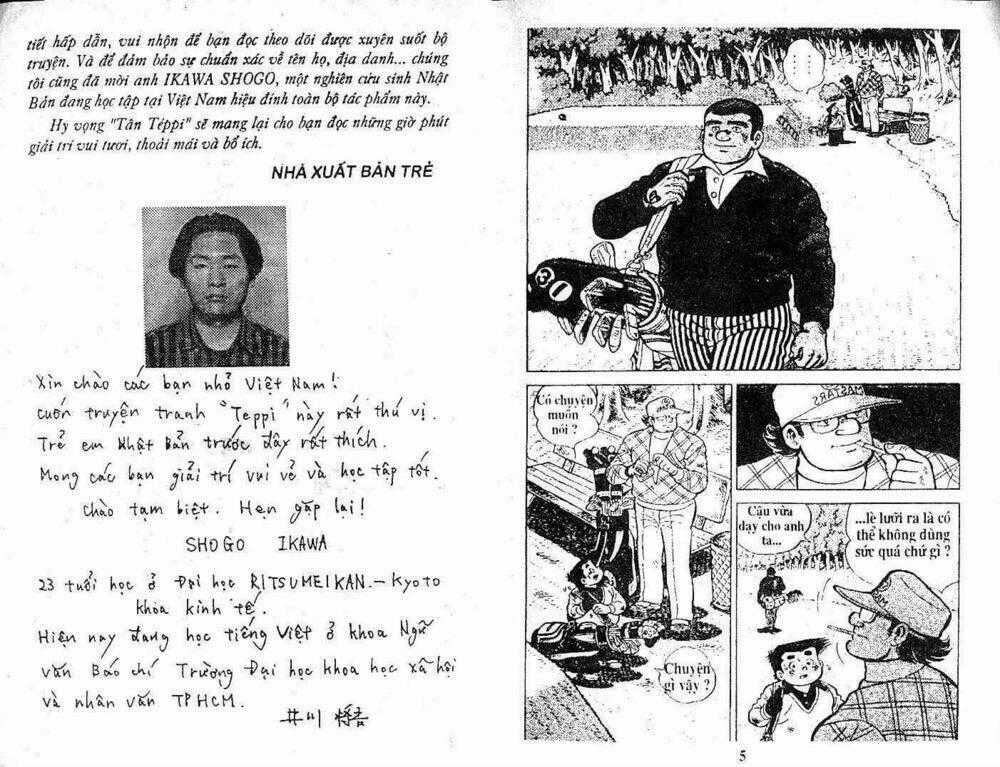 tiết hấp dẫn, vui nhộn để bạn đọc theo dõi được xuyên suốt bộ
truyện. Và để đảm bảo sự chuẩn xác về tên họ, địa danh... chúng
tôi cũng đã mời anh IKAWA SHOGO, một nghiên cứu sinh Nhật
Bản đang học tập tại Việt Nam hiệu đính toàn bộ tác phẩm này.
Hy vọng "Tân Téppi" sẽ mang lại cho bạn đọc những giờ phút
giải trí vui tươi, thoải mái và bổ ích.
NHÀ XUẤT BẢN TRẺ
Xin chào các bạn nhỏ Việt Nam!
Cuốn truyện tranh "Teppi" này rất thú vị.
Trẻ em Nhật Bản trước đây rất thích.
Mong các bạn giải trí vui vẻ và học tập tốt.
Chào tạm biệt. Hẹn gặp lại!
SHOGO IKAWA
23 tuổi học ở Đại học RITSUMEIKAN. - Kyoto
khoa kinh tế.
Hiện nay đang học tiếng Việt ở khoa Ngữ
văn Báo chí Trường Đại học khoa học xã hội
và nhân văn TPHCM.
井川
30
Có chuyện
muốn
nói ?
Chuyện
gì vậy ?
MASTARS
Cậu vừa
dạy cho anh
ta...
...lè lưỡi ra là có
thể không dùng
sức quá chứ gì ?
5